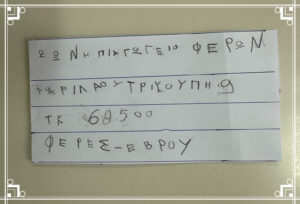 2Ο ΝΗΠΙΑΓΩΓΕΙΟ ΦΕΡΩΝ
ΧΑΡΙΛΑΟΥ ΤΡΙΚΟΥΠΗ 9
ΤΚ 68500
ΦΕΡΕΣ-ΕΒΡΟΥ